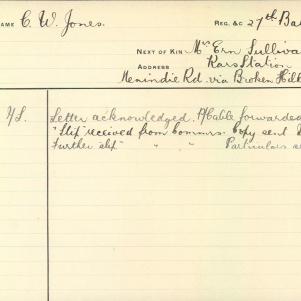 NAME C. W. Jones. REG. &C 27th Ba
NEXT OF KIN Mrs Ern Sulliva
ADDRESS Kars Station
Menindie Rd. via Broken Hill
Letter acknowledged. P/Cable forwarded
"Slip" received from Commrs. Copy sent
Further "slip" " " Particulars